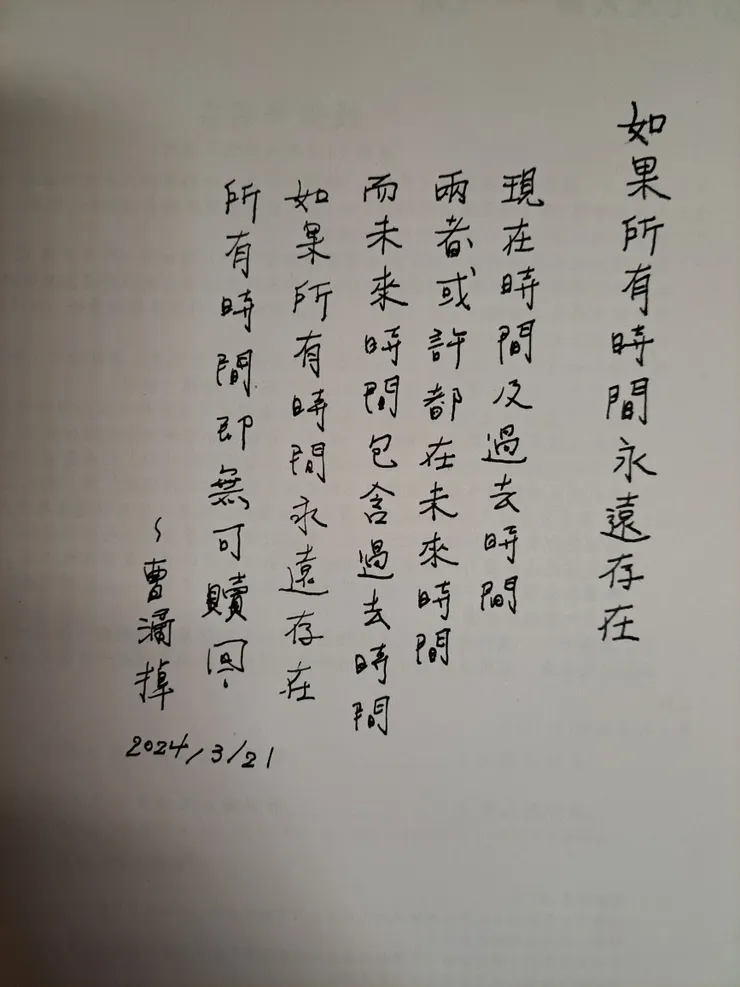 如果所有時間永遠存在
現在時間及過去時間
兩者或許都在未來時間
而未來時間包含過去時間
如果所有時間永遠存在
所有時間即無可贖回.
~曹漏掉
2024/3/21